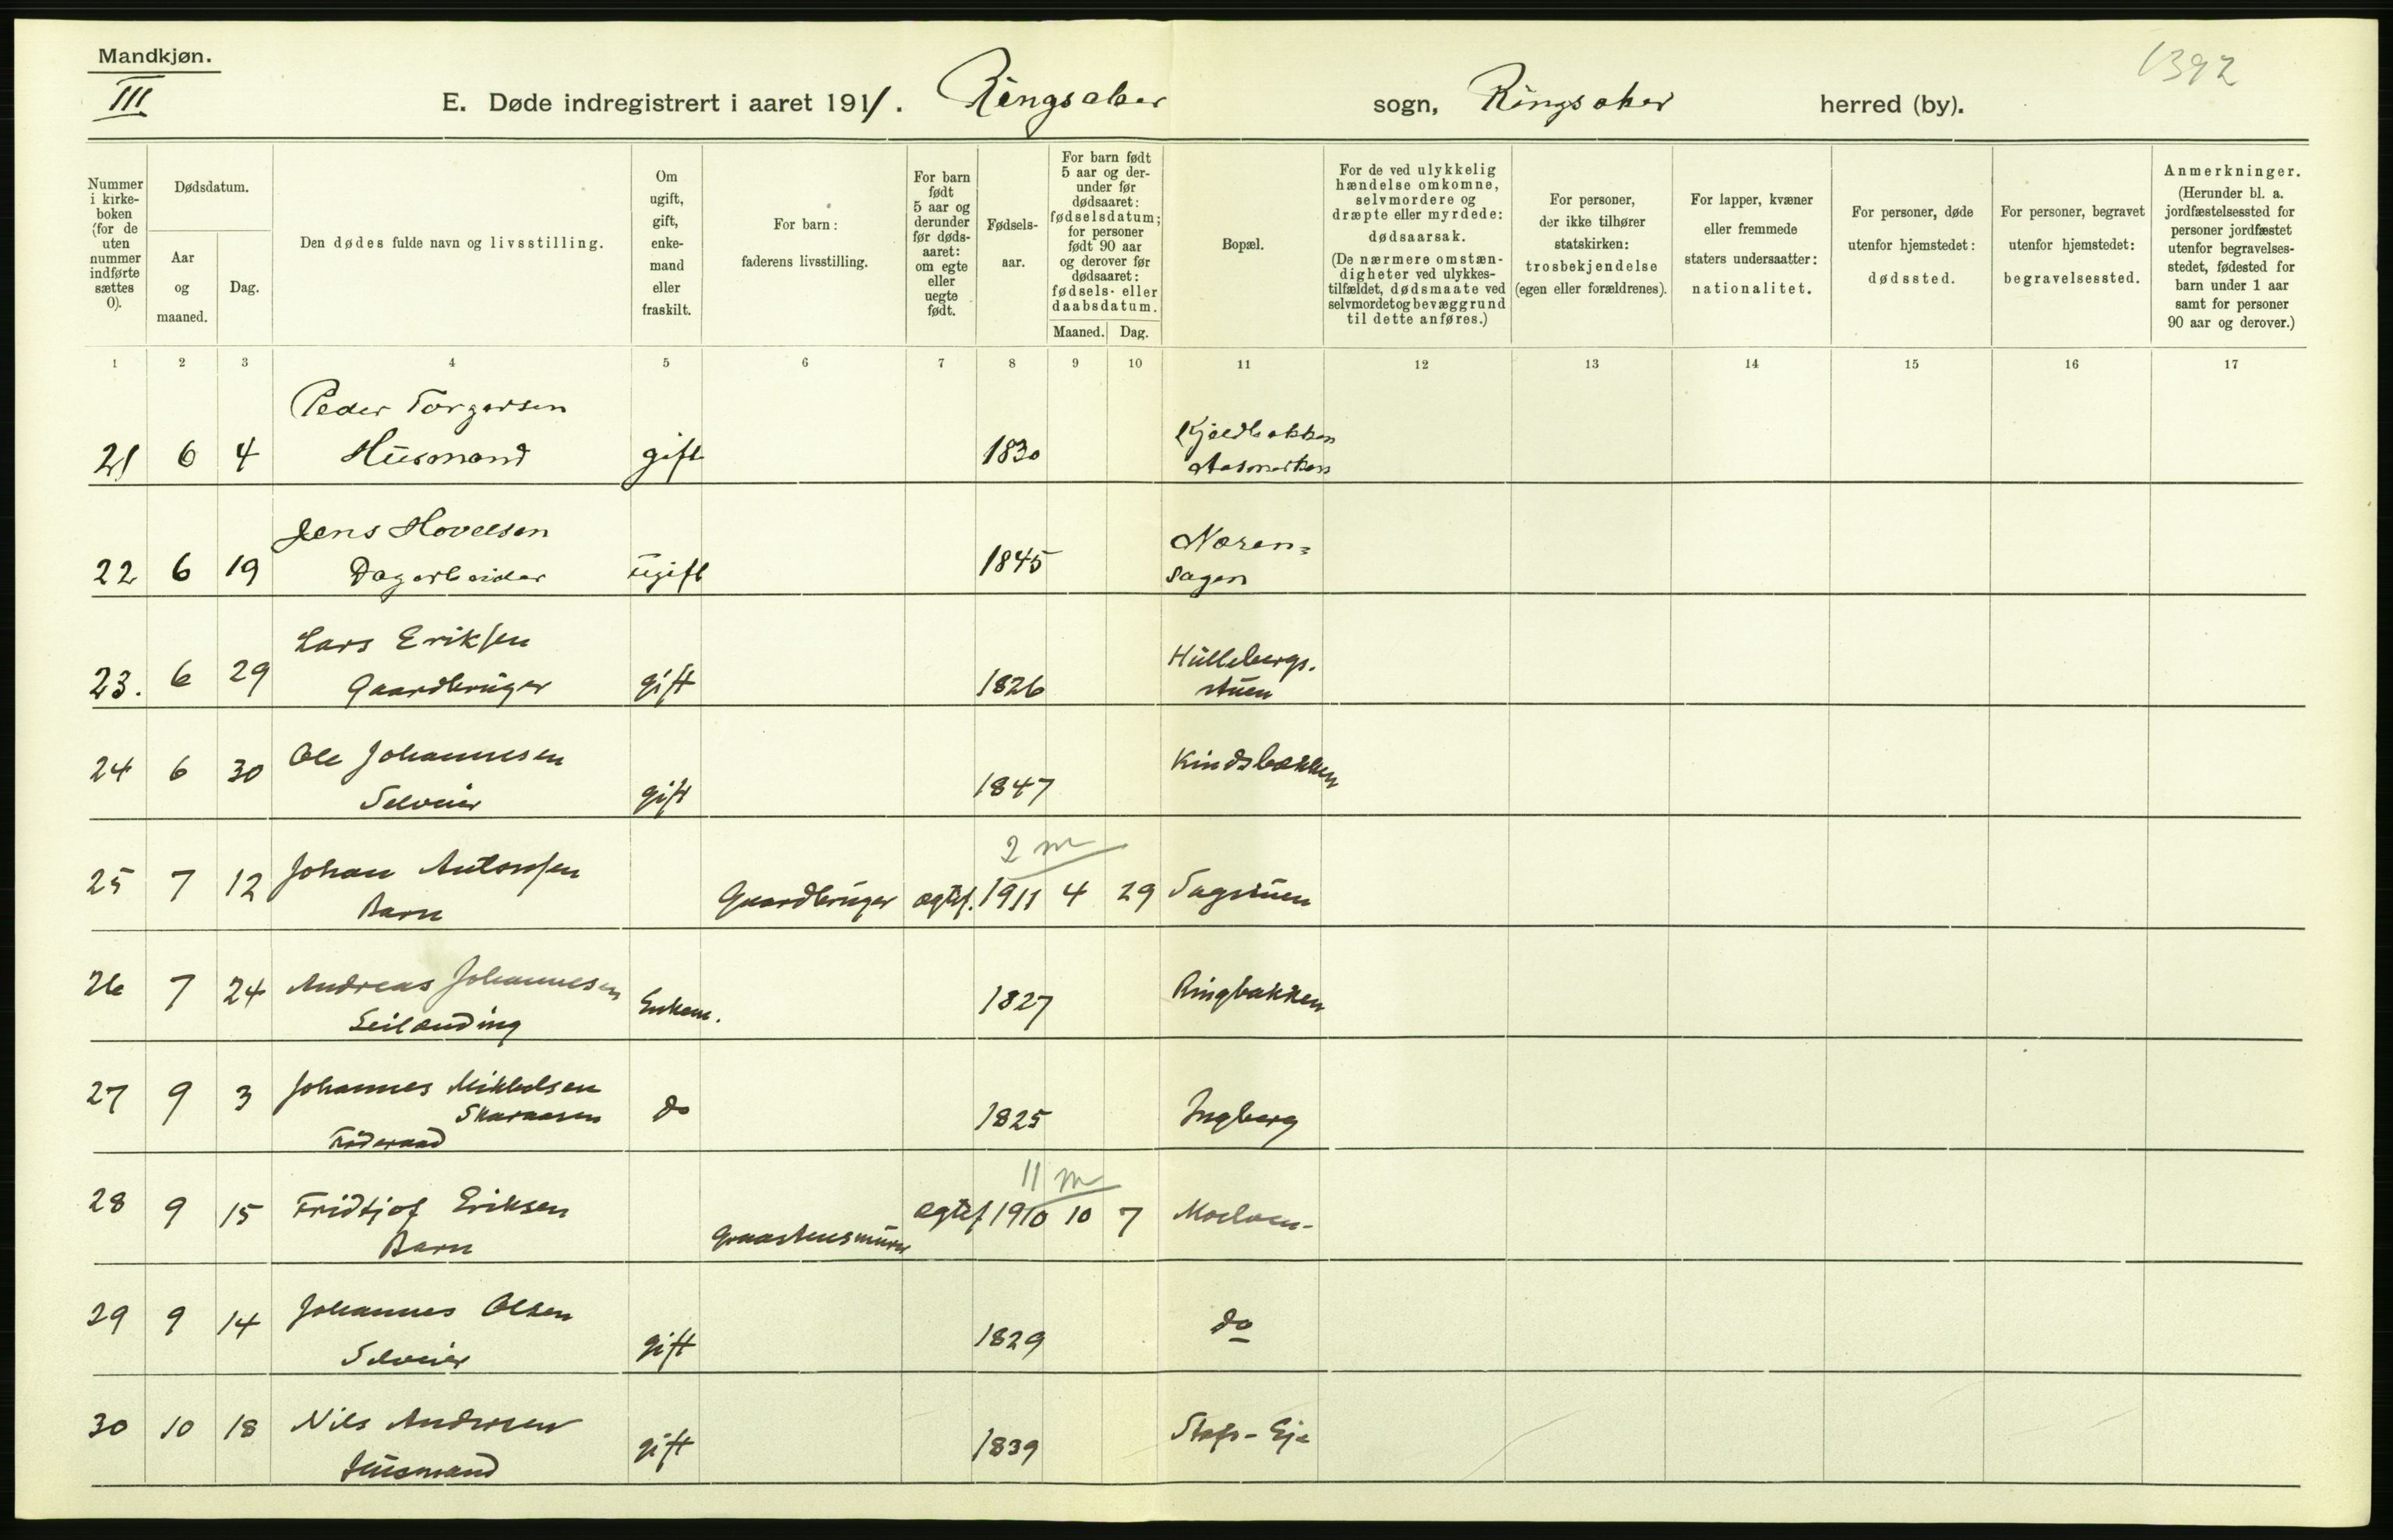 Mandkjøn.
III
1392
E. Døde indregistrert i aaret 1911. Ringsaker sogn, Ringsaker herred (by).
Nummer i kirkeboken (for de uten nummer indførte sættes 0).
Dødsdatum.
Aar og maaned.
Dag.
Den dødes fulde navn og livsstilling.
Om ugift, gift, enkemand eller fraskilt.
For barn: faderens livsstilling.
For barn født 5 aar og derunder før dødsaaret: om egte eller uegte født.
Fødselsaar.
For barn født 5 aar og derunder før dødsaaret: fødselsdatum; for personer født 90 aar og derover før dødsaaret: fødsels- eller daabsdatum.
Maaned. Dag.
Bopæl.
For de ved ulykkelig hændelse omkomne, selvmordere og dræpte eller myrdede: dødsaarsak. (De nærmere omstændigheter ved ulykkestilfældet, dødsmaate ved selvmordet og bevæggrund til dette anføres.)
For personer, der ikke tilhører statskirken: trosbekjendelse (egen eller forældrenes).
For lapper, kvæner eller fremmede staters undersaatter: nationalitet.
For personer, døde utenfor hjemstedet: dødssted.
For personer, begravet utenfor hjemstedet: begravelsessted.
Anmerkninger. (Herunder bl. a. jordfæstelsessted for personer jordfæstet utenfor begravelsesstedet, fødested for barn under 1 aar samt for personer 90 aar og derover.)
1 2 3 4 5 6 7 8 9 10 11 12 13 14 15 16 17
Peder Torgersen
21 6 4 Husmand gift 1830 Kjældbakken Aasmarken
Jens Hovelsen
22 6 19 Dagarbeider ugift 1845 Næren= sagen
Lars Eriksen
23. 6 29 Gaardbruger gift 1826 Hullebergs. stuen
24 6 30 Ole Johannesen Kindsbakken
Selveier gift 1847
2 m
25 7 12 Johan Antonsen
Barn Gaardbruger ægtef. 1911 4 29 Sagstuen
26 7 24 Andreas Johannesen Enkem. 1827 Ringbakken
Leilænding
27 9 3 Johannes Mikkelsen
Skaraasen do 1825 Ingberg
Föderaad
11 m
28 9 15 Fridtjof Eriksen ægtef 1910 10 7 Moelven-
Barn Graastensmurer
29 9 14 Johannes Olsen do
Selveier gift 1829
30 10 18 Nils Andersen Stafs-Eje
Husmand gift 1839